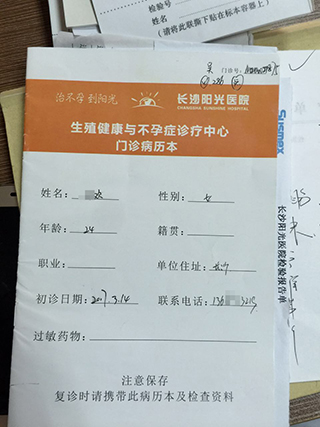 检验号
姓名
(请将此联撕下贴在标本容器上)
门诊号:
治不孕 到阳光
长沙阳光医院
CHANGSHA SUNSHINE HOSPITAL
生殖健康与不孕症诊疗中心
门诊病历本
姓名: 性别: 女
年龄: 24 籍贯:
职业: 单位住址: 长沙
初诊日期: 2017.3.14 联系电话: 136
过敏药物:
注意保存
复诊时请携带此病历本及检查资料
Sysmex
长沙阳光医院检验报告单